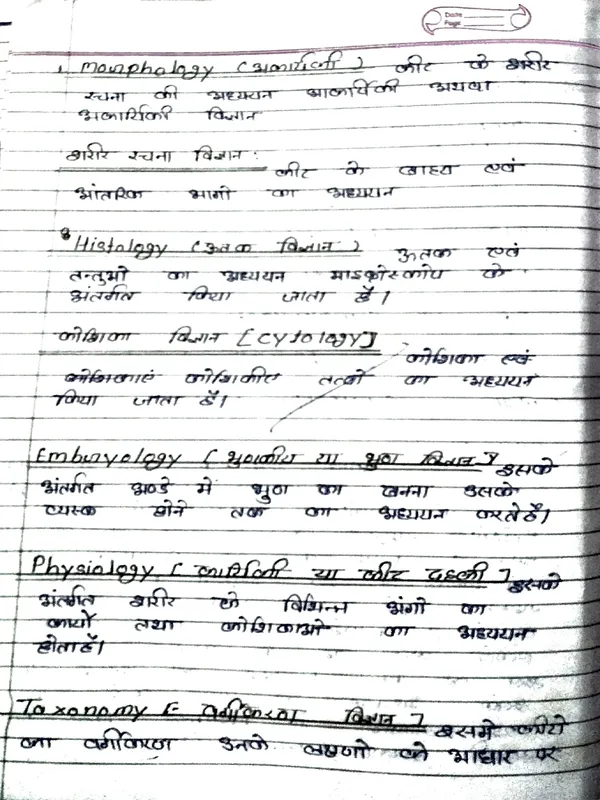 Date
Page
1. Mourphology (अकार्यिली) कीट के शरीर
रचना की अध्ययन आकार्यिकी अथवा
अकार्यिकी विज्ञान
शरीर रचना विज्ञान :
कीट के बाह्य एवं
आंतरिक भागो का अध्ययन
Histology (ऊतक विज्ञान) ऊतक एवं
तन्तुओ का अध्ययन माइक्रोस्कोप के
अंतर्गत किया जाता है।
कोशिका विज्ञान [Cytology]
कोशिका एवं
कोशिकाएं कोशिकीए तत्वो का अध्ययन
किया जाता है।
Emburyology (भ्रुणकीय या भ्रुण विज्ञान) इसके
अंतर्गत अण्डे में भ्रुण का बनना उसके
व्यस्क होने तक का अध्ययन करते है।
Physiology [कार्यिकी या कीट दहली] इसके
अंतर्गत शरीर के विभिन्न अंगो का
कार्यो तथा कोशिकाओ का अध्ययन
होता है।
Taxonomy [वर्गीकरण विज्ञान] इसमे कीटो
का वर्गीकरण उनके लक्षणो के आधार पर